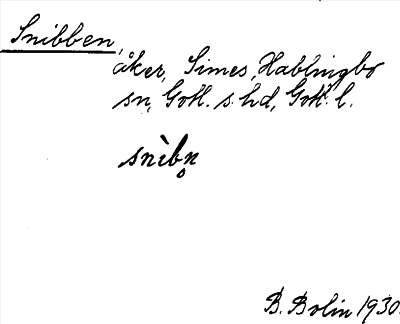 Snibben,
åker, Simes, Hablingbo
sn, Gotl. s. hd, Gotl. l.
snìbn̥
B. Bolin 1930.